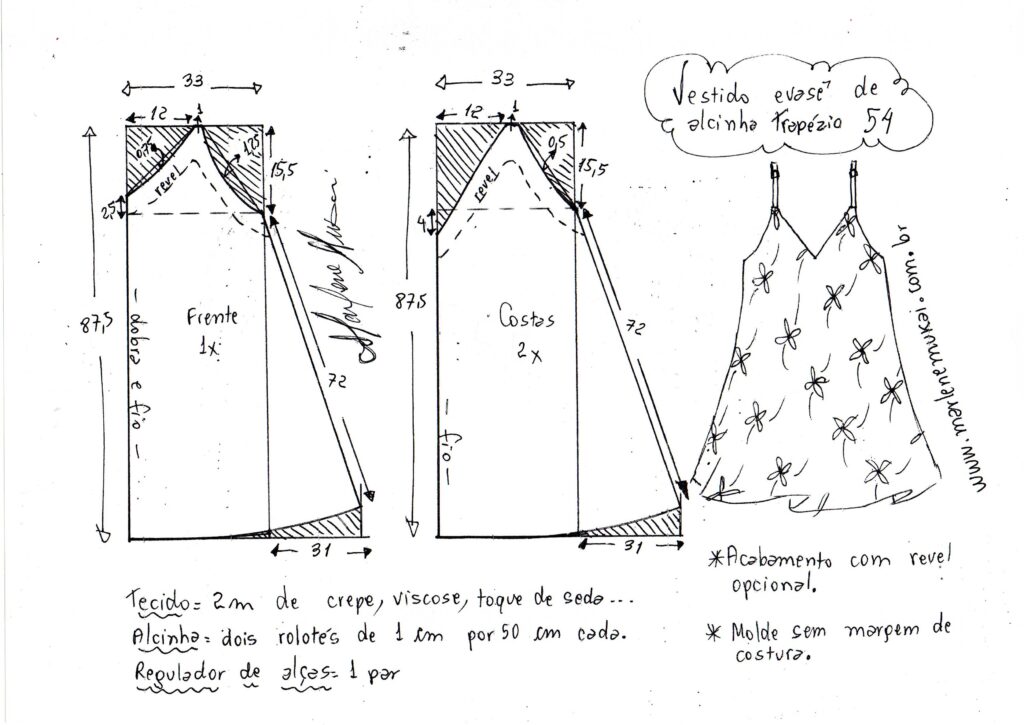 Vestido evasê de
alcinha trapézio 54
33
12
1
0,7
1,25
15,5
revel
2,5
87,5
Frente
1x
dobra e fio
72
31
33
12
1
0,5
15,5
revel
4
87,5
Costas
2x
fio
72
31
Marlene Mukai
www.marlenemukai.com.br
Tecido= 2m de crepe, viscose, toque de seda...
Alcinha= dois rolotés de 1 cm por 50 cm cada.
Regulador de alças= 1 par
*Acabamento com revel
opcional.
* Molde sem margem de
costura.